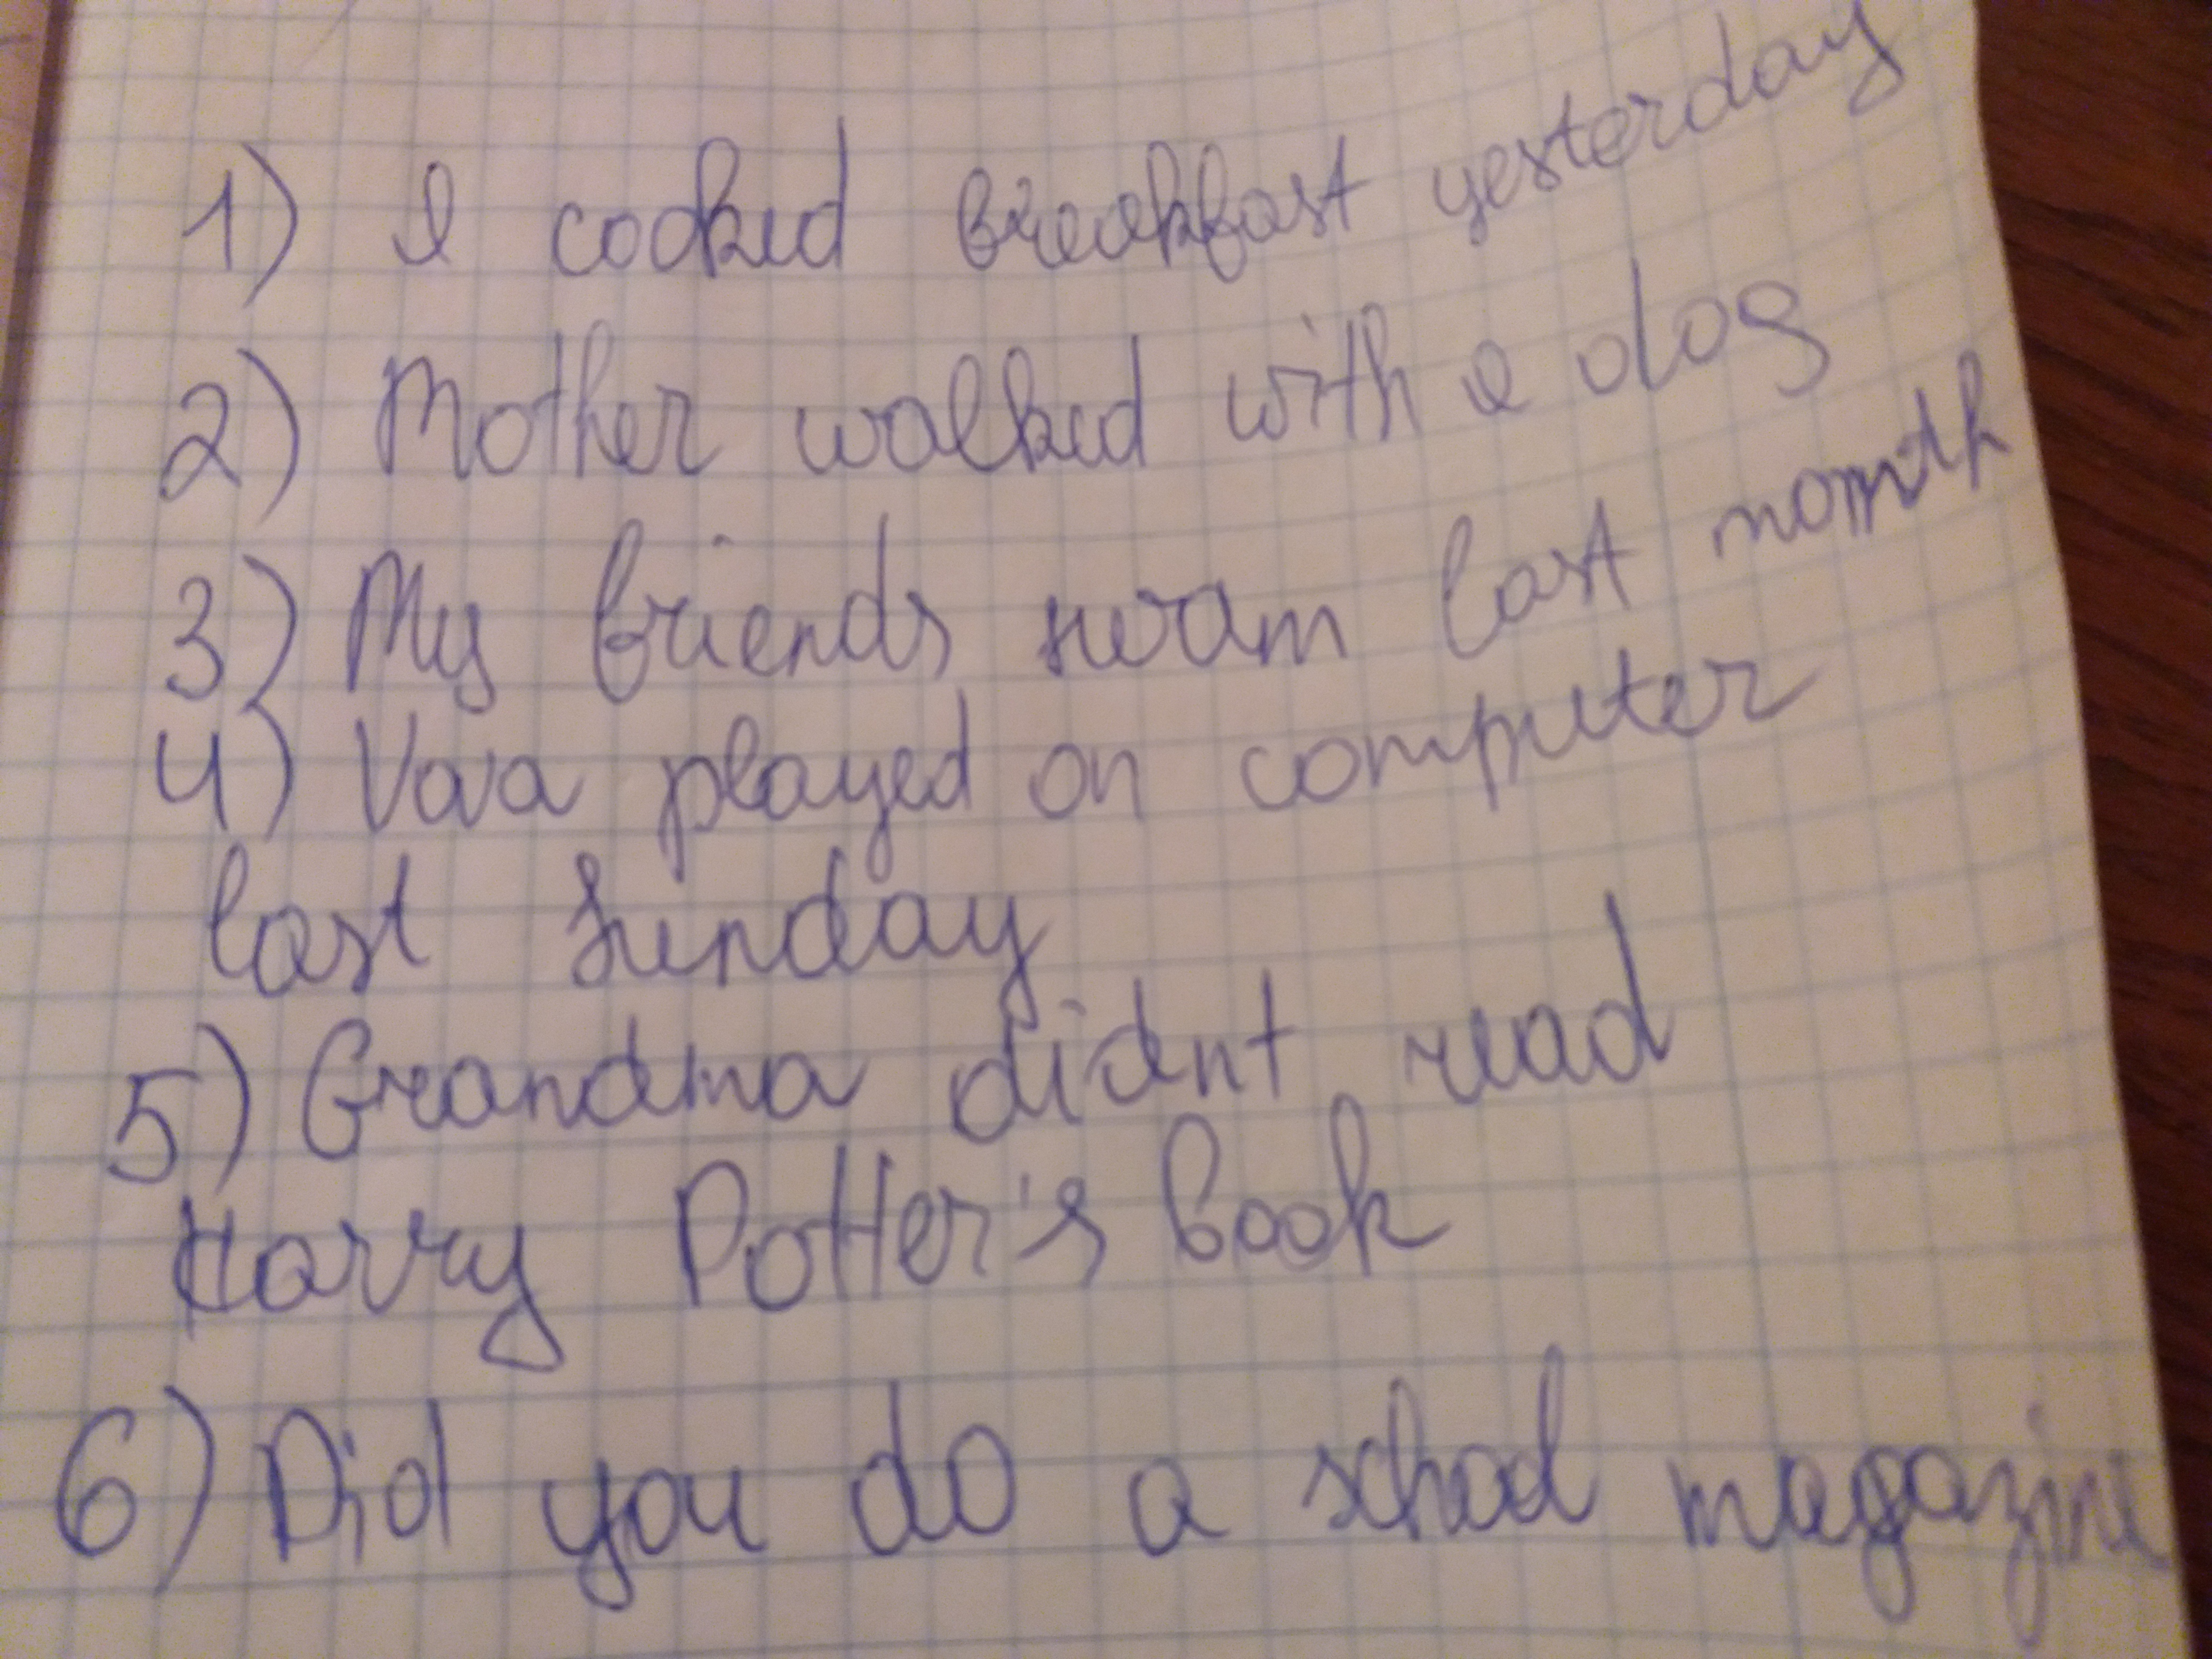 1) I cooked breakfast yesterday
2) Mother walked with a dog
3) My friends swam last month
4) Vova played on computer
last Sunday
5) Grandma didnt read
Harry Potter's book
6) Did you do a school magazine